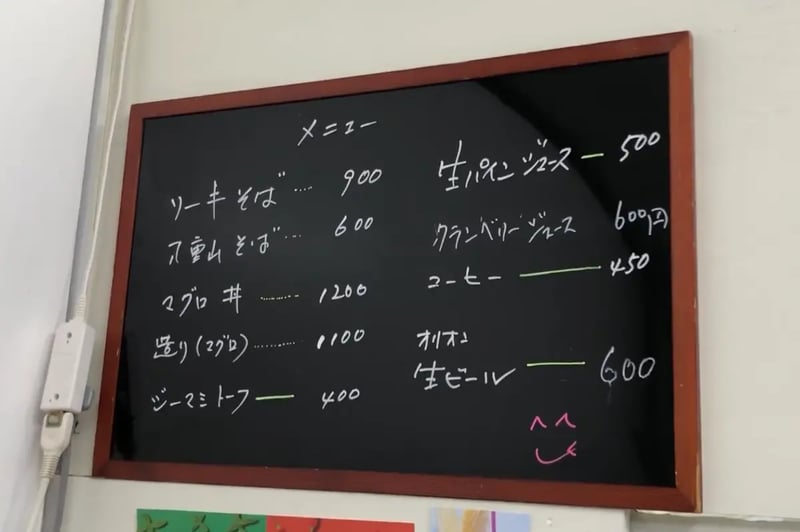 メニュー
ソーキそば… 900
八重山そば… 600
マグロ丼 ……… 1200
造り(マグロ)……… 1100
ジーマミトーフ — 400
生パインジュース — 500
クランベリージュース 600円
コーヒー — 450
オリオン
生ビール — 600